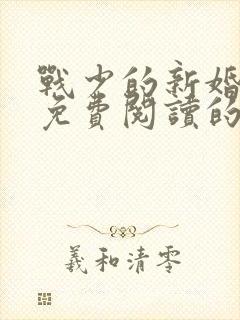 戰少的新婚
免費閱讀的
羲和清零